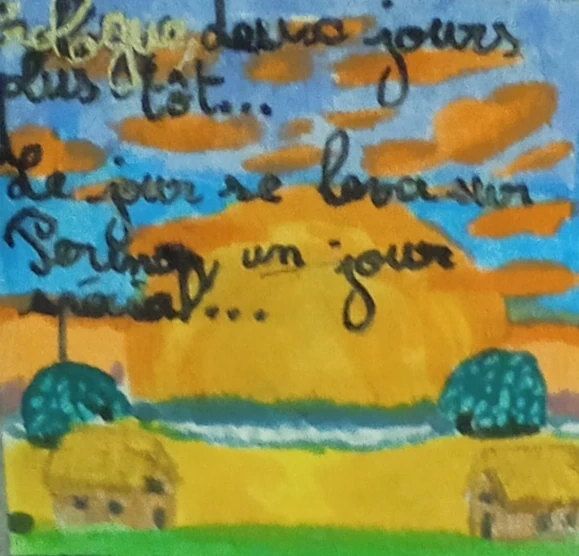 deux jours
plus tôt...
Le jour se leva sur
un jour
spécial...